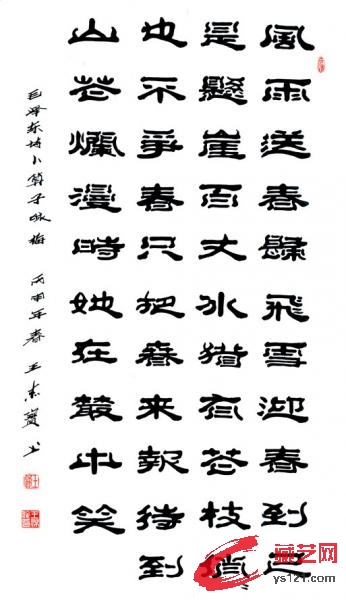 風雨送春歸飛雪迎春到已
是懸崖百丈冰猶有花枝俏〻
也不爭春只把春來報待到
山花爛漫時她在叢中笑
毛泽东诗卜算子咏梅 丙申年春 王 书
藏艺网
ys121.com